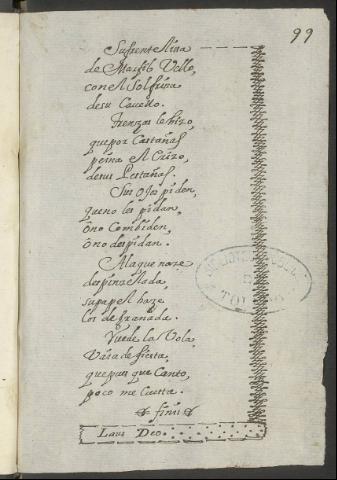 99
Su frente lisa
de Marfil Vello,
con el Sol frisa
de su Cavello.
Trenzas le hizo,
que por Castañas
peina el Erizo,
de sus Pestañas.
Sus ojos piden,
que no les pidan,
ô no Combiden,
ô no despidan.
Ala que naze
des pinzelada,
su papel haze
los de Granada.
Vuede la Vola,
Vaia de fiesta,
que pues que Canto,
poco me Cuesta.
finis
Laus Deo.
TOLEDO